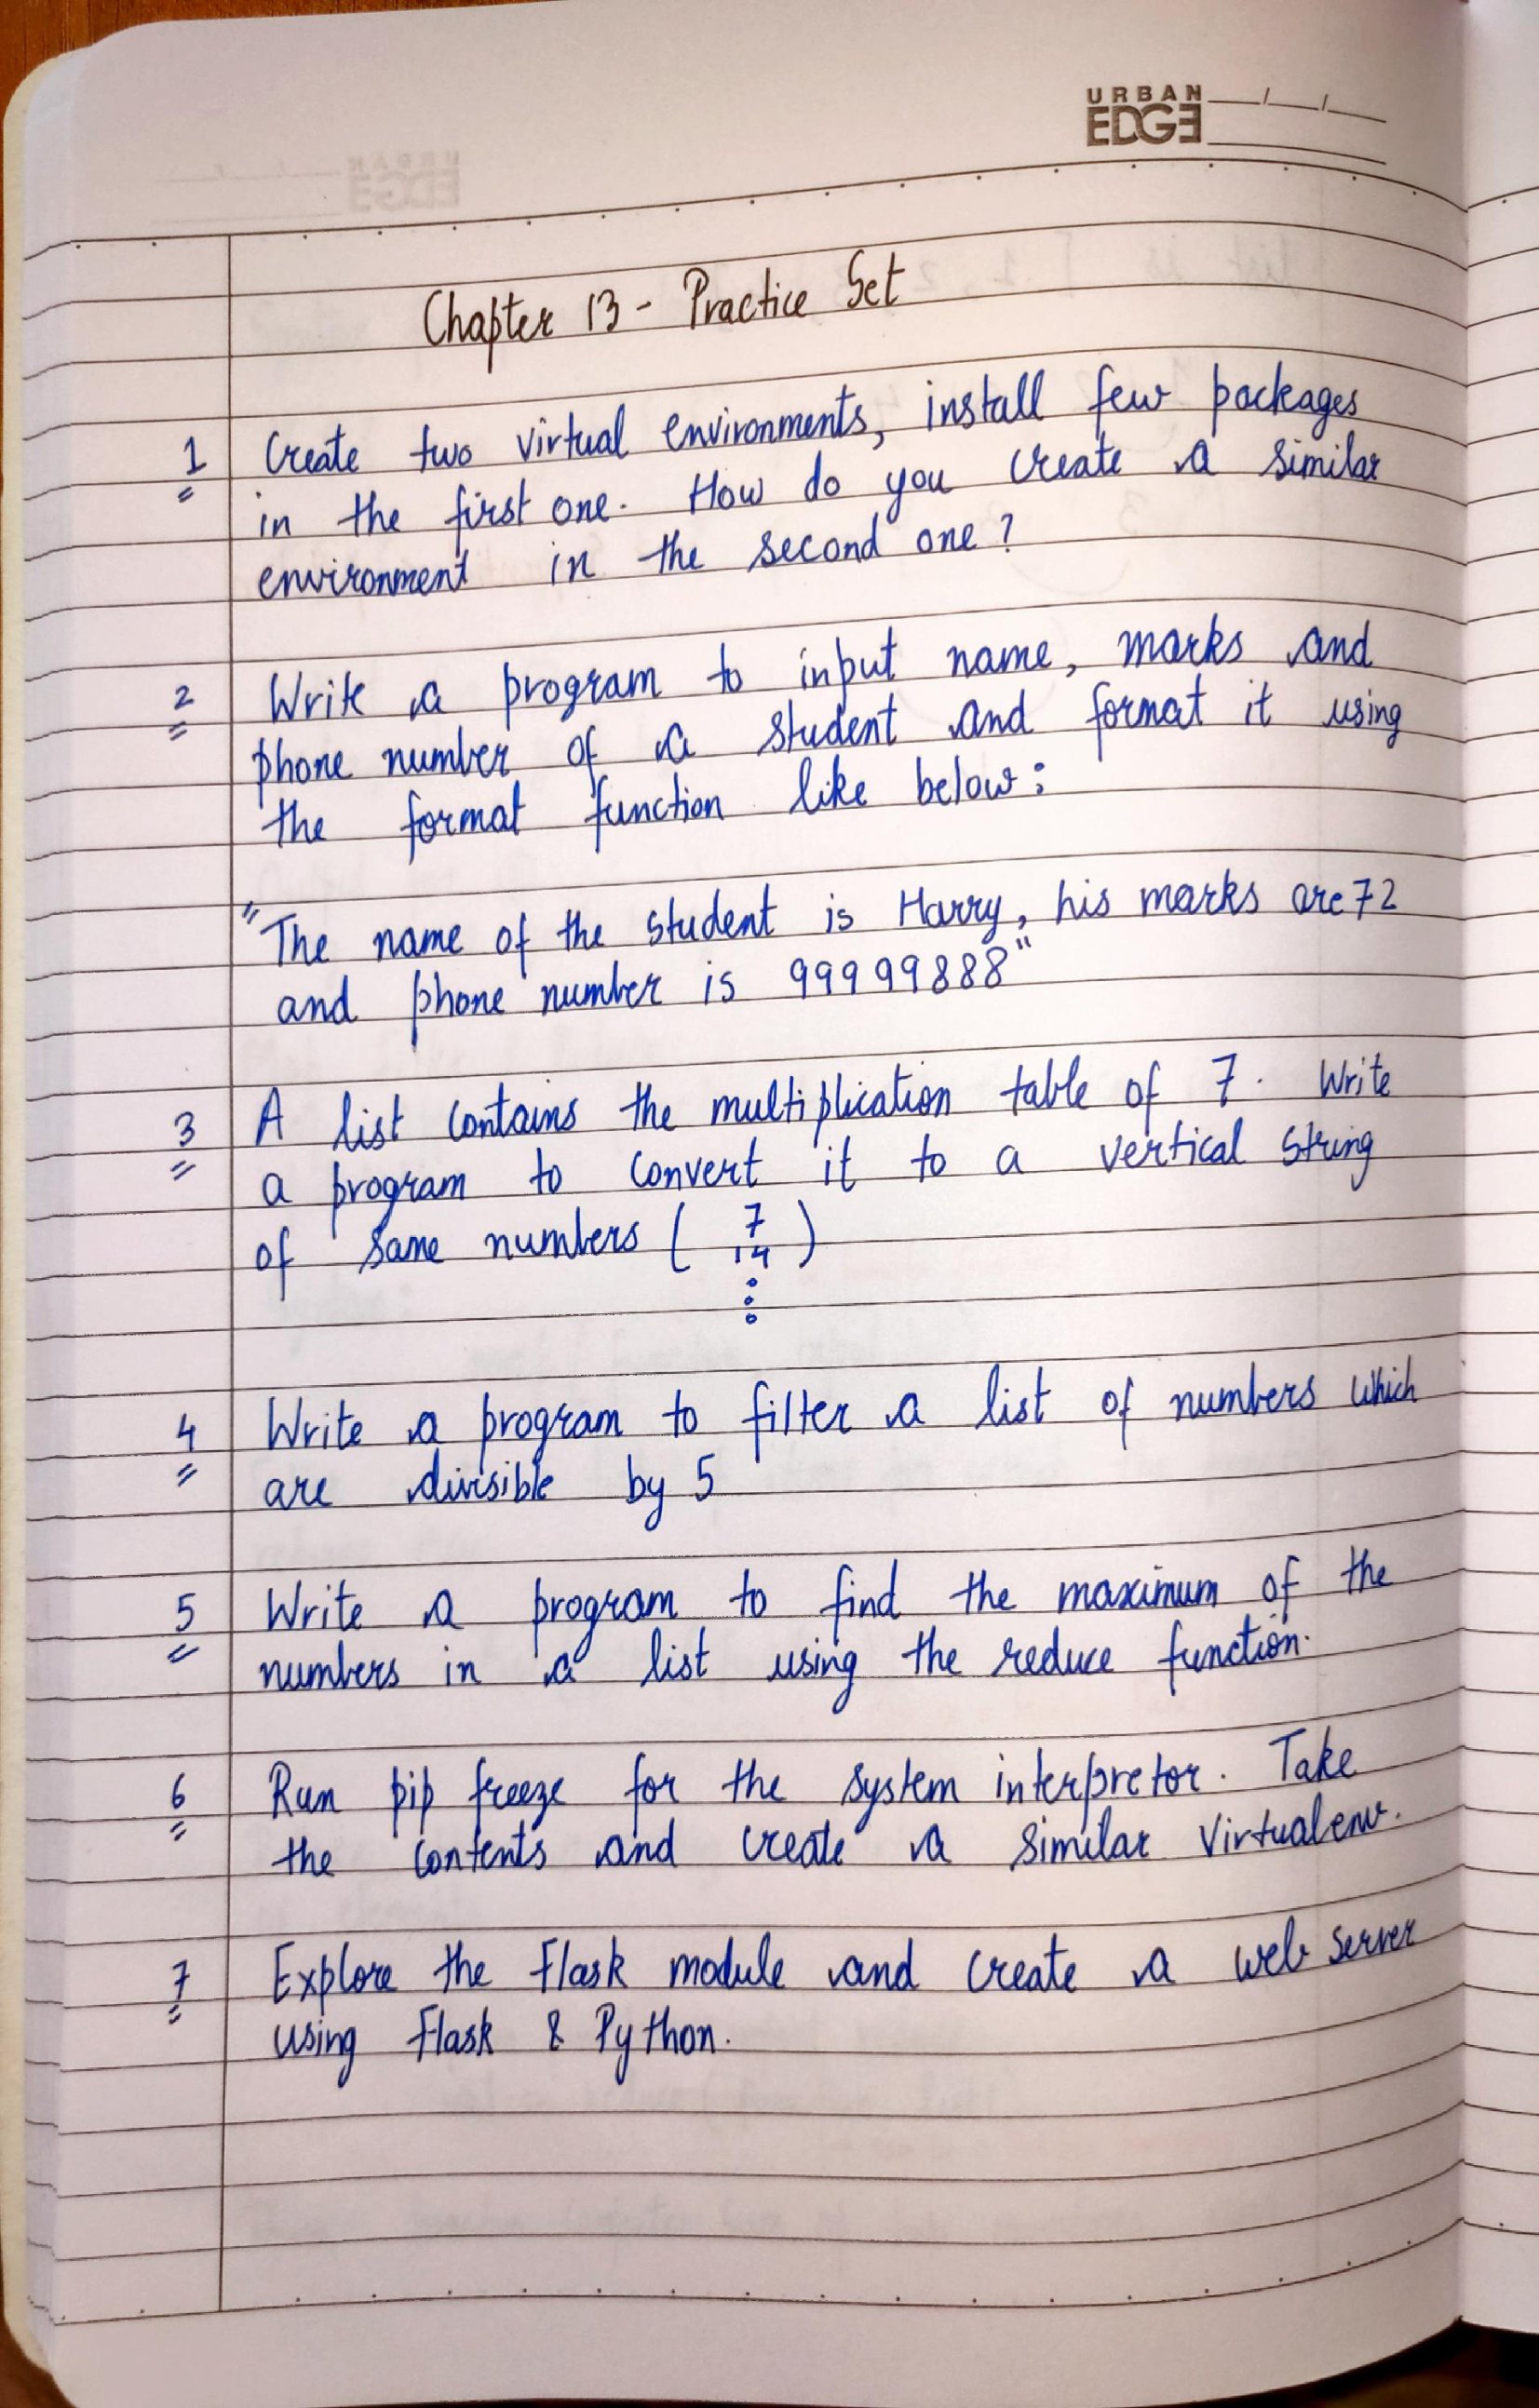 URBAN
EDGE
Chapter 13 - Practice Set
1 Create two virtual environments, install few packages
in the first one. How do you create a similar
environment in the second one?
2 Write a program to input name, marks and
phone number of a student and format it using
the format function like below:
"The name of the student is Harry, his marks are 72
and phone number is 99999888"
3 A list contains the multiplication table of 7. Write
a program to convert it to a vertical string
of same numbers ( 7 )
14
4 Write a program to filter a list of numbers which
are divisible by 5
5 Write a program to find the maximum of the
numbers in a list using the reduce function.
6 Run pip freeze for the system interpretor. Take
the contents and create a similar Virtualenv.
7 Explore the Flask module and create a web server
using Flask & Python.